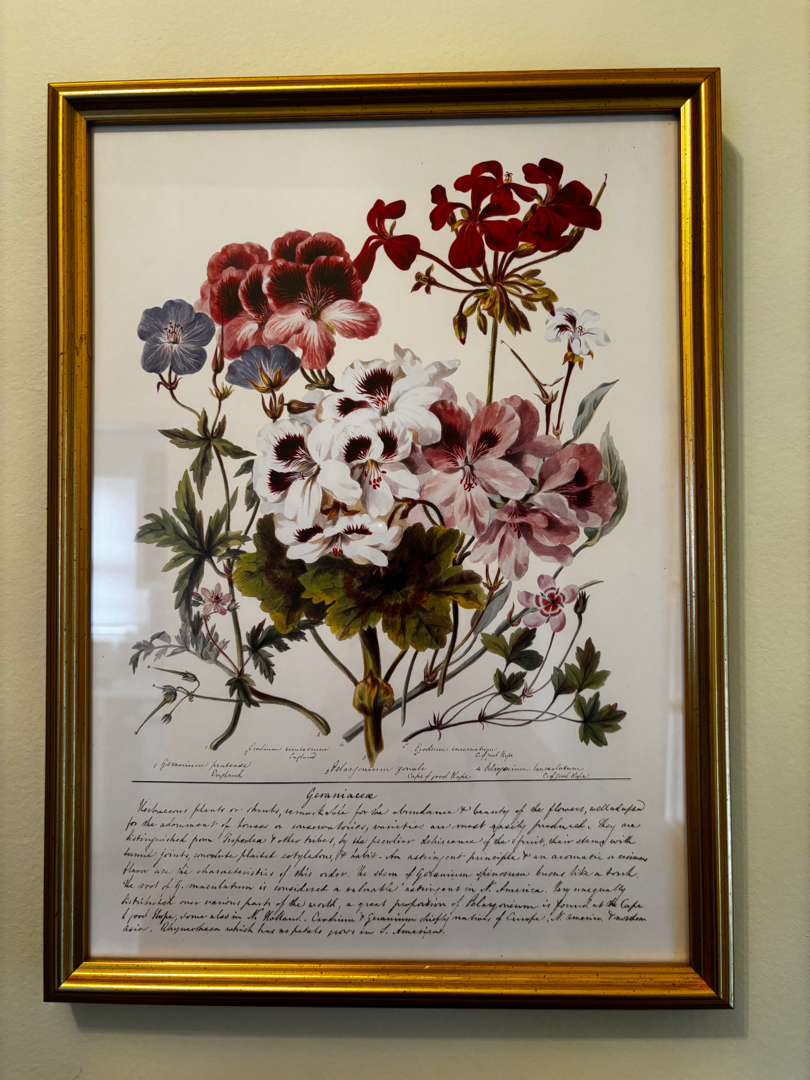 2 Erodium cicutarium
England
5 Grodium incarnatum
C. of good Hope
1 Geranium pratense
England
3 Pelargonium zonale
Cape of good Hope
4 Pelargonium lanceolatum
C. of good Hope
Geraniaceæ
Herbaceous plants or shrubs, remarkable for the abundance & beauty of the flowers, well adapted
for the adornment of houses or conservatories, varieties are most easily produced. They are
distinguished from & other tribes, by the peculiar dehiscence of the fruit, their stems with
tumid joints, convolute plaited cotyledons, & habit. An astringent principle & an aromatic or resinous
flavor are the characteristics of this order. The stem of Geranium spinosum burns like a torch
the root of G. maculatum is considered a valuable astringent in N. America. Very unequally
distributed over various parts of the world, a great proportion of Pelargonium is found at the Cape
of good Hope, some also in N. Holland. & Geranium chiefly natives of Europe, N. America & northern
Asia. which has no petals grows in S. America.